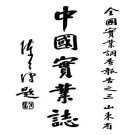 全國實業調查報告之三 山東省
中國實業誌